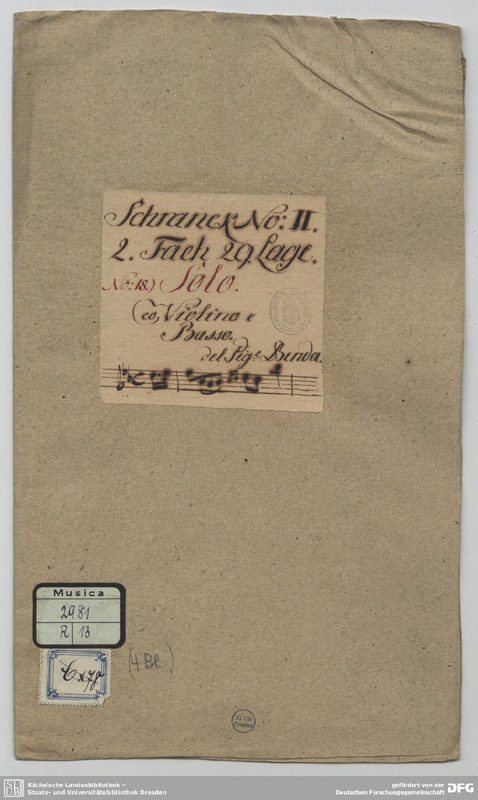 Schranck No: II.
2. Fach 29. Lage.
No: 18.) Solo.
co Violino e
Basso.
del Sigr. Benda.
Musica
2981
R 13
(4 Bl.)
SLUB
Dresden
SLUB
Sächsische Landesbibliothek –
Staats- und Universitätsbibliothek Dresden
gefördert von der
Deutschen Forschungsgemeinschaft
DFG